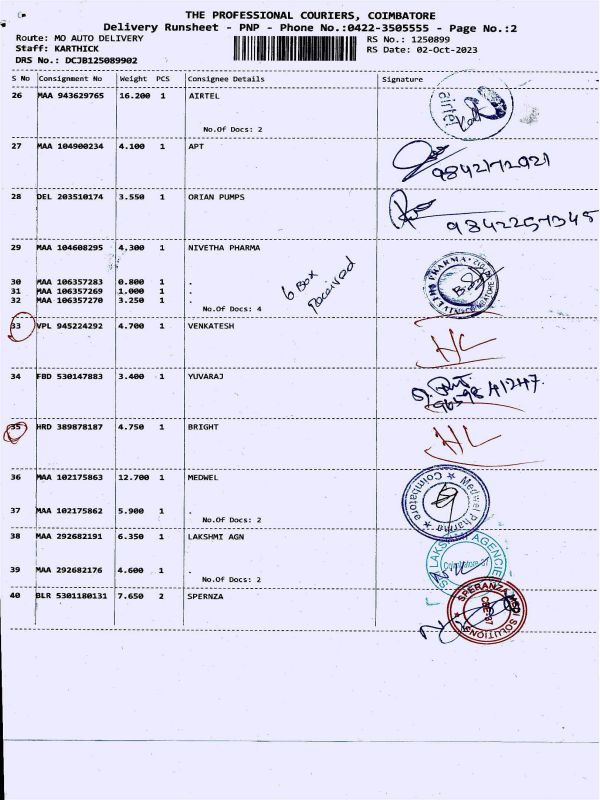 THE PROFESSIONAL COURIERS, COIMBATORE
Delivery Runsheet - PNP - Phone No.:0422-3505555 - Page No.:2
Route: MO AUTO DELIVERY RS No.: 1250899
Staff: KARTHICK RS Date: 02-Oct-2023
DRS No.: DCJB125089902
S No Consignment No Weight PCS Consignee Details Signature
26 MAA 943629765 16.200 1 AIRTEL
airtel
No.Of Docs: 2
27 MAA 104900234 4.100 1 APT
9842172921
28 DEL 203510174 3.550 1 ORIAN PUMPS
9842257345
29 MAA 104608295 4.300 1 NIVETHA PHARMA
30 MAA 106357283 0.800 1 .
31 MAA 106357269 1.000 1 .
32 MAA 106357270 3.250 1 .
No.Of Docs: 4
6 Box
received
PHARMA
COIMBATORE
33 VPL 945224292 4.700 1 VENKATESH
HL
34 FBD 530147883 3.400 1 YUVARAJ
35 HRD 389878187 4.750 1 BRIGHT
HL
36 MAA 102175863 12.700 1 MEDWEL
Medwel Pharma
Coimbatore
37 MAA 102175862 5.900 1 .
No.Of Docs: 2
38 MAA 292682191 6.350 1 LAKSHMI AGN
SRI LAKSHMI AGENCIES
Coimbatore-37
39 MAA 292682176 4.600 1 .
No.Of Docs: 2
40 BLR 5301180131 7.650 2 SPERNZA
SPERANZA MEDI SOLUTIONS
CBE-37